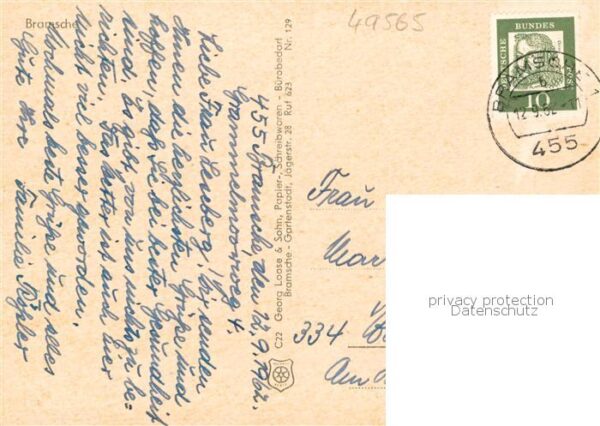 Bramsche
49565
DEUTSCHE BUNDESPOST
10
BRAMSCHE 1
b
455
455 Bramsche, den 12.9.1962.
4.
Liebe Frau Ihr senden
Ihnen die herzlichsten Grüße und
hoffen, daß Sie bei guter Gesundheit
sind. Es gibt von uns nichts zu be-
richten. Das Wetter ist auch hier
nicht viel besser geworden.
Nochmals beste Grüße und alles
Gute Ihre Familie
C22 Georg Loose & Sohn, Papier-, Schreibwaren - Bürobedarf
Bramsche - Gartenstadt, Jägerstr. 28 Ruf 623 Nr. 129
Frau
Mar
334
Am
privacy protection
Datenschutz